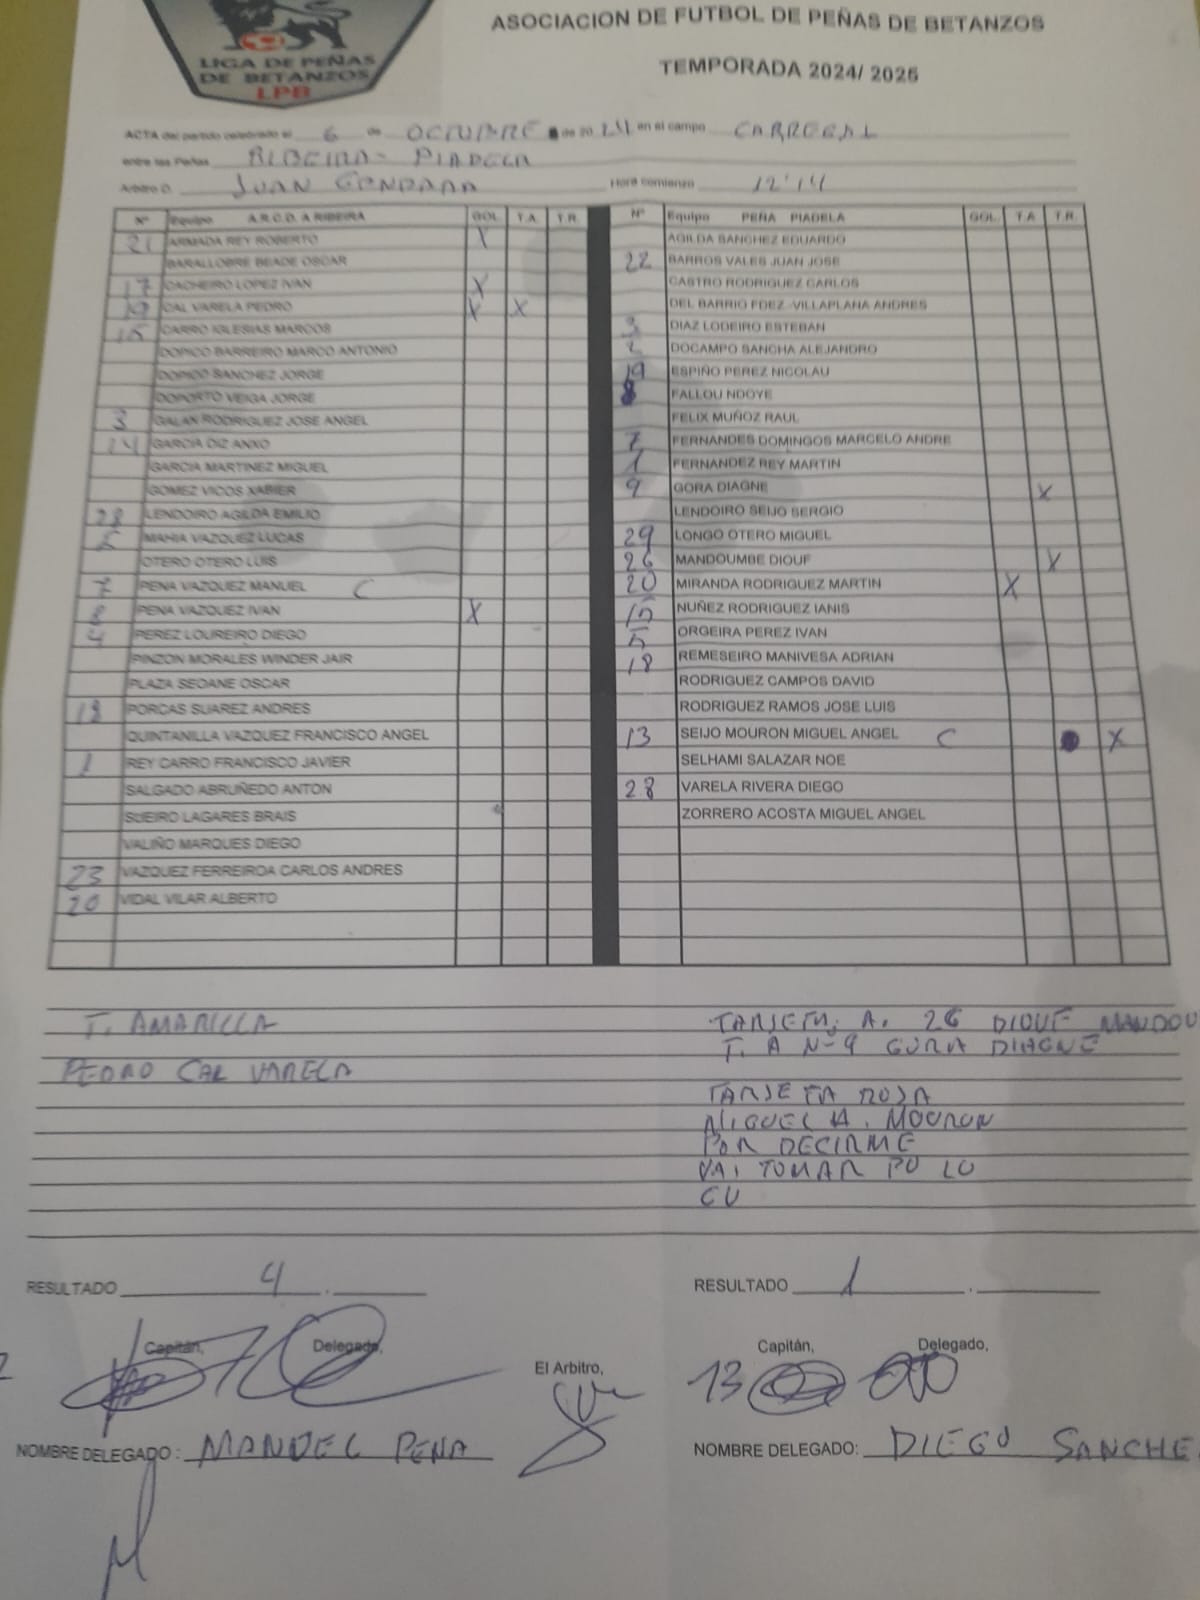 ASOCIACION DE FUTBOL DE PEÑAS DE BETANZOS
LIGA DE PEÑAS
DE BETANZOS
LPB
TEMPORADA 2024/ 2025
ACTA del partido celebrado el 6 de OCTUBRE de 2024 en el campo CARREGAL
entre las Peñas RIBEIRA - PIADELA
Arbitro D. JUAN Hora comienzo 12'14
Nº Equipo A.R.C.D. A RIBEIRA GOL T.A. T.R.
21 ARMADA REY ROBERTO X
BARALLOBRE BEADE OSCAR
17 CACHEIRO LOPEZ IVAN X
19 CAL VARELA PEDRO X X
15 CARRO IGLESIAS MARCOS
DOPICO BARREIRO MARCO ANTONIO
DOPICO SANCHEZ JORGE
DOPORTO VEIGA JORGE
3 GALAN RODRIGUEZ JOSE ANGEL
14 GARCIA DIZ ANXO
GARCIA MARTINEZ MIGUEL
GOMEZ VICOS XABIER
28 LENDOIRO AGILDA EMILIO
5 MAHIA VAZQUEZ LUCAS
OTERO OTERO LUIS
7 PENA VAZQUEZ MANUEL C
8 PENA VAZQUEZ IVAN X
4 PEREZ LOUREIRO DIEGO
PINZON MORALES WINDER JAIR
PLAZA SEOANE OSCAR
PORCAS SUAREZ ANDRES
QUINTANILLA VAZQUEZ FRANCISCO ANGEL
1 REY CARRO FRANCISCO JAVIER
SALGADO ABRUÑEDO ANTON
SUEIRO LAGARES BRAIS
VALIÑO MARQUES DIEGO
23 VAZQUEZ FERREIROA CARLOS ANDRES
20 VIDAL VILAR ALBERTO
Nº Equipo PEÑA PIADELA GOL. T.A T.R.
AGILDA SANCHEZ EDUARDO
22 BARROS VALES JUAN JOSE
CASTRO RODRIGUEZ CARLOS
DEL BARRIO FDEZ -VILLAPLANA ANDRES
3 DIAZ LODEIRO ESTEBAN
2 DOCAMPO SANCHA ALEJANDRO
19 ESPIÑO PEREZ NICOLAU
8 FALLOU NDOYE
FELIX MUÑOZ RAUL
7 FERNANDES DOMINGOS MARCELO ANDRE
1 FERNANDEZ REY MARTIN
9 GORA DIAGNE X
LENDOIRO SEIJO SERGIO
29 LONGO OTERO MIGUEL
26 MANDOUMBE DIOUF X
20 MIRANDA RODRIGUEZ MARTIN X
15 NUÑEZ RODRIGUEZ IANIS
5 ORGEIRA PEREZ IVAN
18 REMESEIRO MANIVESA ADRIAN
RODRIGUEZ CAMPOS DAVID
RODRIGUEZ RAMOS JOSE LUIS
13 SEIJO MOURON MIGUEL ANGEL C X
SELHAMI SALAZAR NOE
28 VARELA RIVERA DIEGO
ZORRERO ACOSTA MIGUEL ANGEL
T. AMARILLA
PEDRO CAL VARELA
TARJETA A. 26 DIOUF MANDOU
T. A Nº 9 GORA DIAGNE
TARJETA ROJA
MIGUEL A. MOURON
POR DECIRME
VAI TOMAR PO LO
CU
RESULTADO 4 .
Capitán, Delegado,
NOMBRE DELEGADO : MANUEL PENA
El Arbitro,
RESULTADO 1 .
Capitán, Delegado,
13
NOMBRE DELEGADO: DIEGO SANCHE